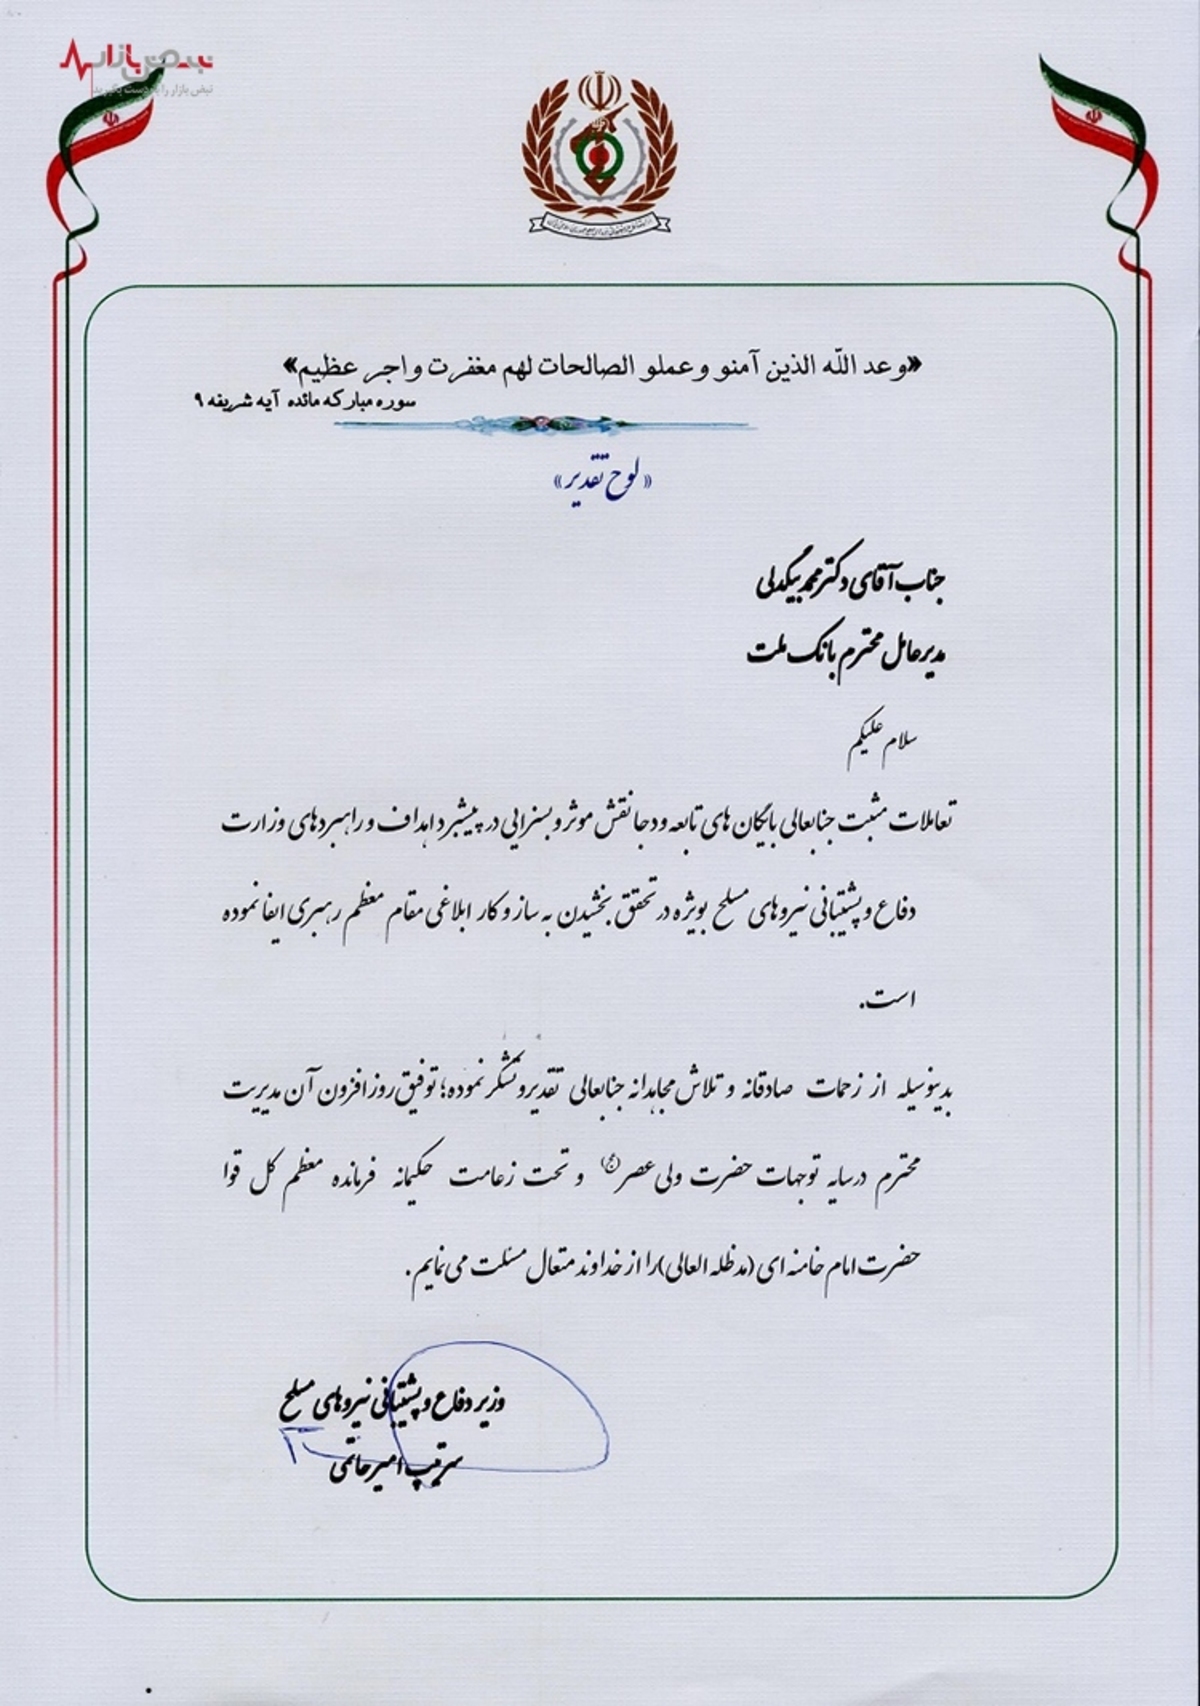 نبض بازار
نبض بازار را در دست بگیرید
«وعد اللّه الذین آمنو وعملو الصالحات لهم مغفرت واجر عظیم»
سوره مبارکه مائده آیه شریفه ۹
«لوح تقدیر»
جناب آقای دکتر محمد بیگدلی
مدیرعامل محترم بانک ملت
سلام علیکم
تعاملات مثبت جنابعالی با یگان های تابعه ودجا نقش موثر و بسزایی در پیشبرد اهداف و راهبردهای وزارت
دفاع و پشتیبانی نیروهای مسلح بویژه در تحقق بخشیدن به ساز و کار ابلاغی مقام معظم رهبری ایفا نموده
است.
بدینوسیله از زحمات صادقانه و تلاش مجاهدانه جنابعالی تقدیر و تشکر نموده؛ توفیق روز افزون آن مدیریت
محترم در سایه توجهات حضرت ولی عصر (عج) و تحت زعامت حکیمانه فرمانده معظم کل قوا
حضرت امام خامنه ای (مدظله العالی) را از خداوند متعال مسئلت می نمایم.
وزیر دفاع و پشتیبانی نیروهای مسلح
سرتیپ امیر حاتمی